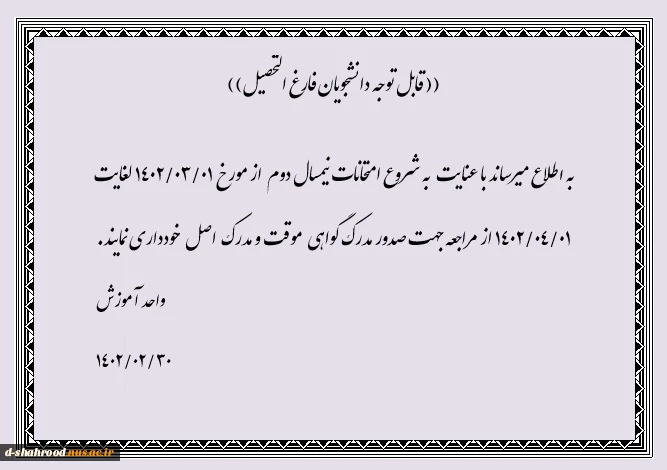 ((قابل توجه دانشجویان فارغ التحصیل))
به اطلاع میرساند با عنایت به شروع امتحانات نیمسال دوم از مورخ ۱۴۰۲/۰۳/۰۱ لغایت
۱۴۰۲/۰۴/۰۱ از مراجعه جهت صدور مدرک گواهی موقت و مدرک اصل خودداری نمایند.
واحد آموزش
۱۴۰۲/۰۲/۳۰
d-shahrood.nus.ac.ir